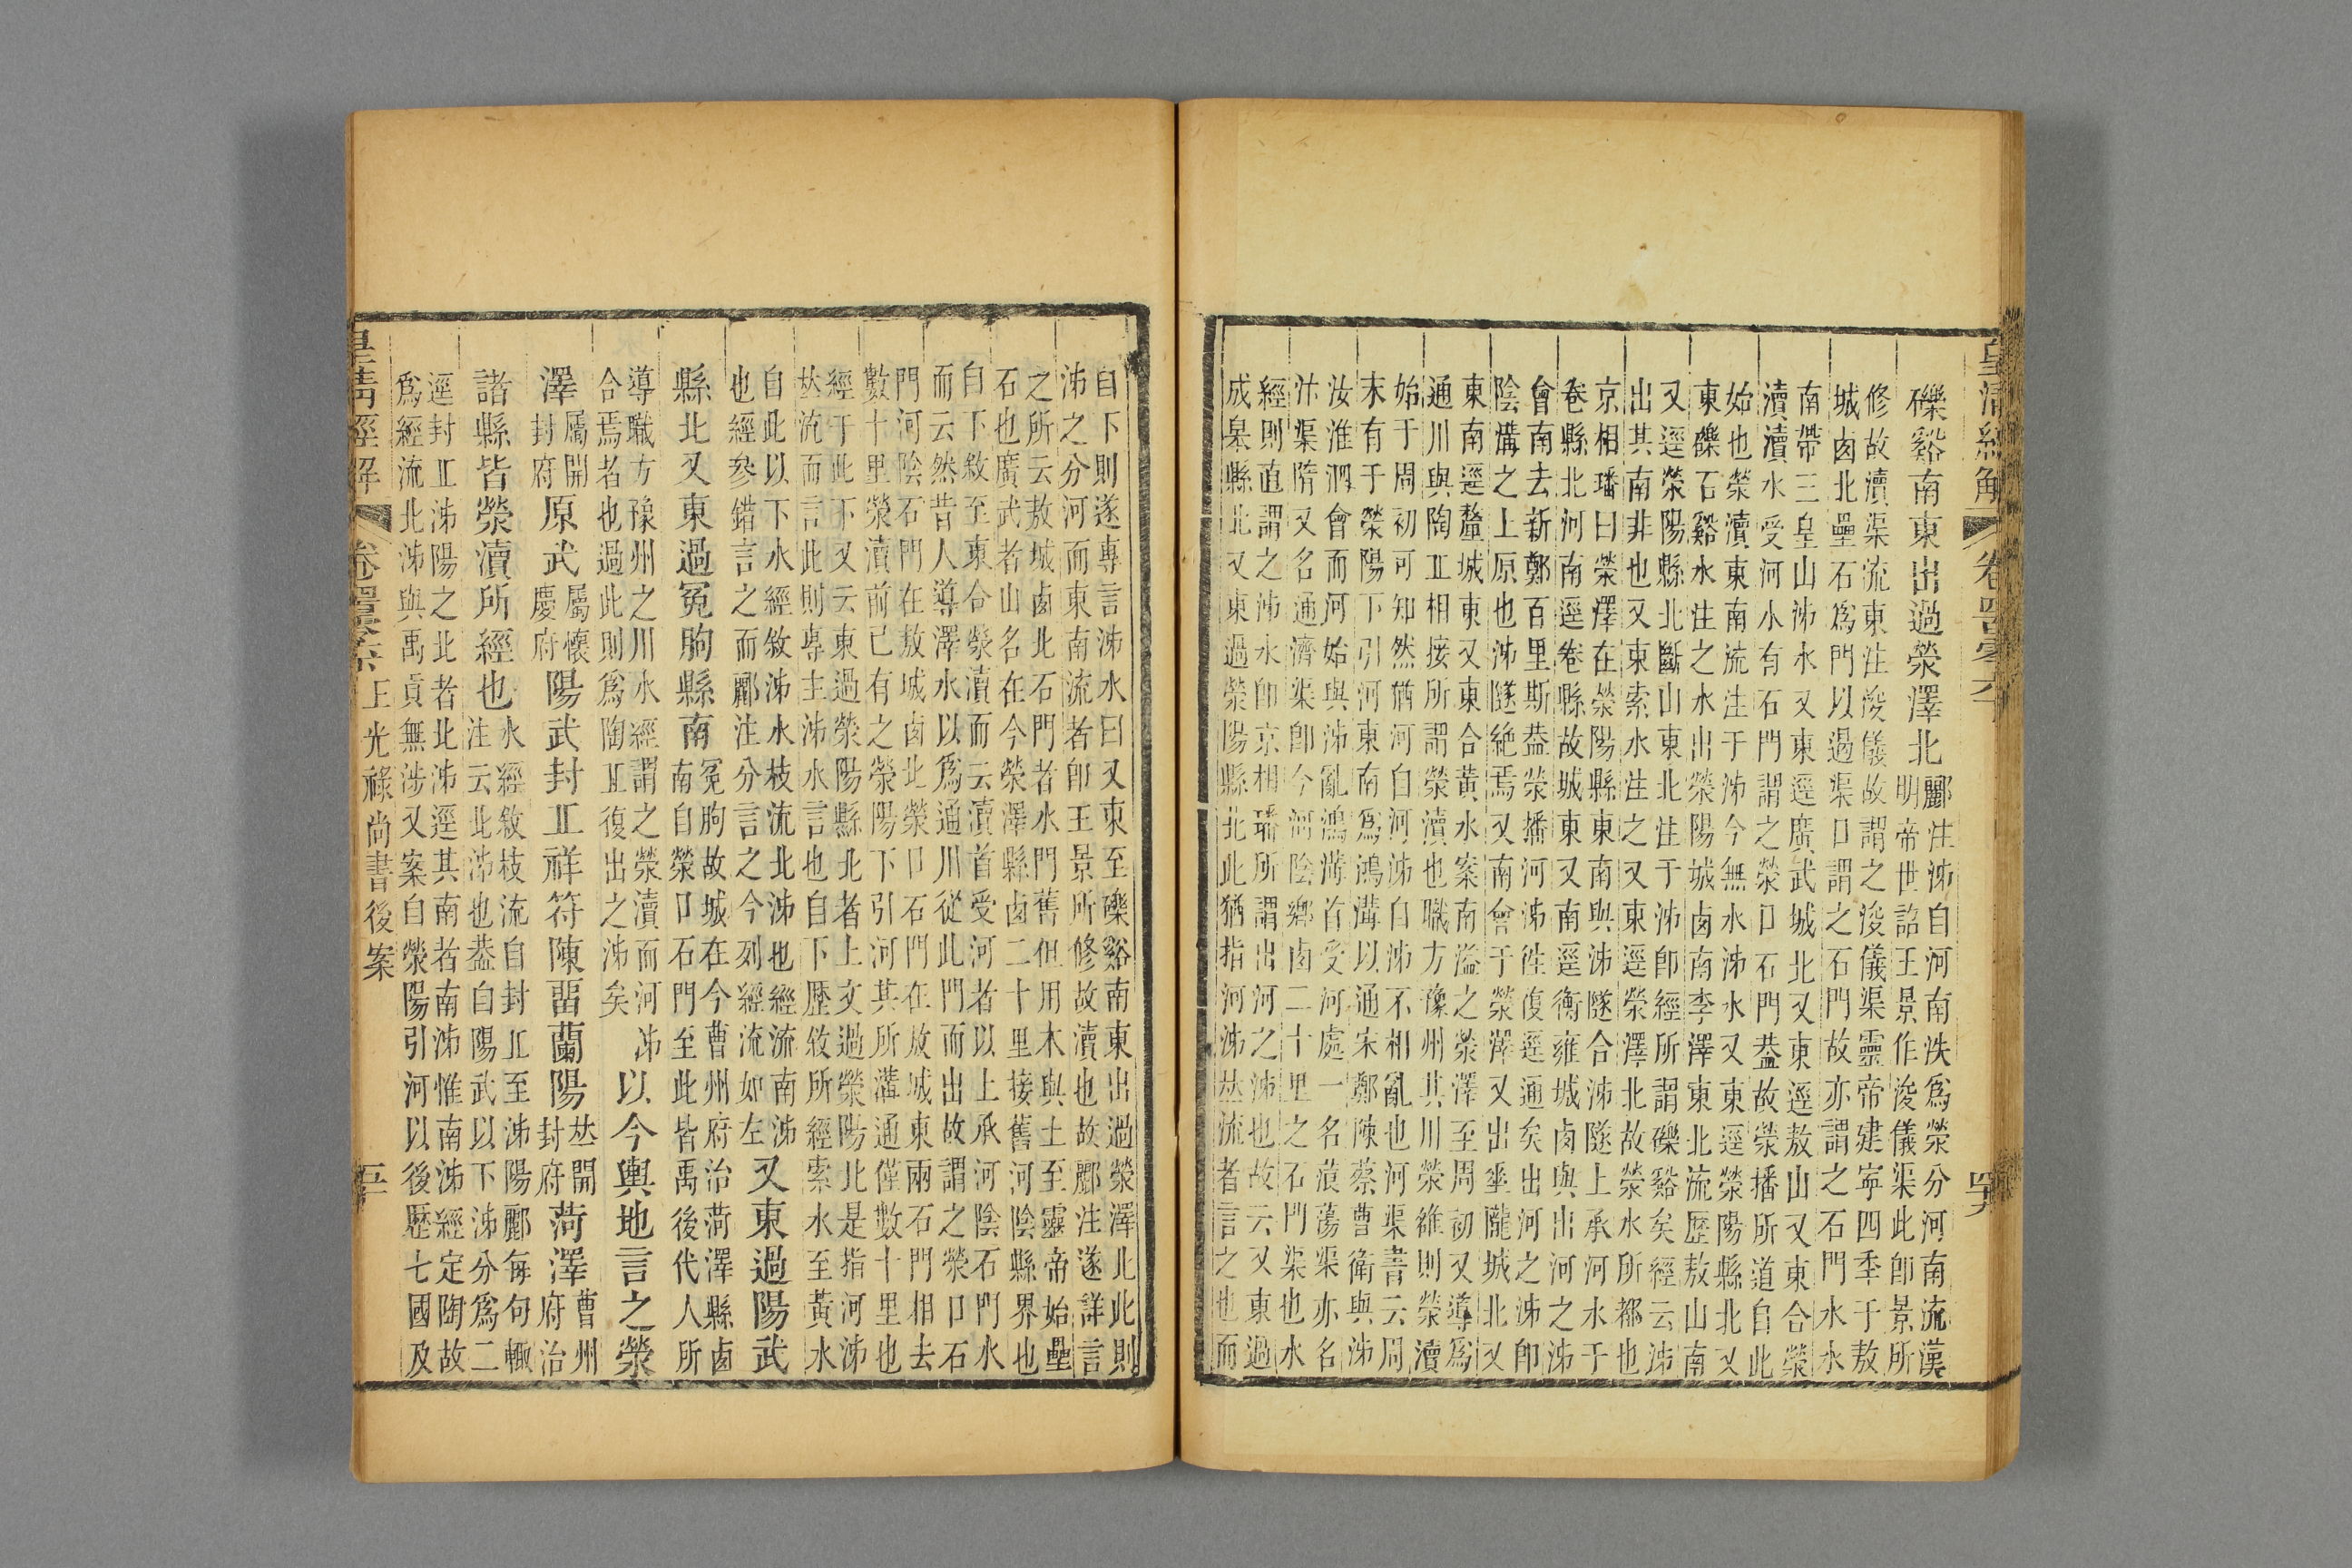 皇清經解
四九
礫谿南東出過滎澤北
酈注泲自河南泆爲滎分河南流漢
明帝世詔王景作浚儀渠此卽景所
修故瀆渠流東注浚儀故謂之浚儀渠靈帝建寧四季于敖
城卤北壘石爲門以遏渠口謂之石門故亦謂之石門水水
南帶三皇山泲水又東逕廣武城北又東逕敖山又東合滎
瀆瀆水受河水有石門謂之滎口石門葢故滎播所道自此
始也滎瀆東南流注于泲今無水泲水又東逕滎陽縣北又
東礫石谿水注之水出滎陽城卤南李澤東北流歷敖山南
又逕滎陽縣北斷山東北注于泲卽經所謂礫谿矣經云泲
出其南非也又東索水注之又東逕滎澤北故滎水所都也
京相璠曰滎澤在滎陽縣東南與泲隧合泲隧上承河水于
卷縣北河南逕卷縣故城東又南逕衡雍城卤與出河之泲
會南去新鄭百里斯葢滎播河泲徃復逕通矣出河之泲卽
陰溝之上原也泲隧絶焉又南會于滎澤又出垂隴城北又
東南逕釐城東又東合黃水案南溢之滎澤至周初又導爲
通川與陶丘相接所謂滎瀆也職方豫州其川滎雒則滎瀆
始于周初可知然猶河自河泲自泲不相亂也河渠書云周
末有于滎陽下引河東南爲鴻溝以通宋鄭陳蔡曹衛與泲
汝淮泗會而河始與泲亂鴻溝首受河處一名蒗蕩渠亦名
汴渠隋又名通濟渠卽今河陰鄉卤二十里之石門渠也水
經則直謂之泲水卽京相璠所謂出河之泲也故云又東過
成皋縣北又東過滎陽縣北此猶指河泲𠀤流者言之也而
自下則遂專言泲水曰又東至礫谿南東出過滎澤北此則
泲之分河而東南流者卽王景所修故瀆也故酈注遂詳言
之所云敖城卤北石門者水門舊但用木與土至靈帝始壘
石也廣武者山名在今滎澤縣卤二十里接舊河陰縣界也
自下敘至東合滎瀆而云瀆首受河者以上承河陰石門水
而云然昔人導澤水以爲通川從此門而出故謂之滎口石
門河陰石門在敖城卤北滎口石門在故城東兩石門相去
數十里滎瀆前已有之滎陽下引河其所溝通僅數十里也
經于此下又云東過滎陽縣北者上文過滎陽北是指河泲
𠀤流而言此則專主泲水言也自下歷敘所經索水至黃水
自此以下水經敘泲水枝流北泲也經流南泲
也經參錯言之而酈注分言之今列經流如左
又東過陽武
縣北又東過冤朐縣南
冤朐故城在今曹州府治菏澤縣卤
南自滎口石門至此皆禹後代人所
導職方豫州之川水經謂之滎瀆而河泲
合焉者也過此則爲陶丘復出之泲矣
以今輿地言之滎
澤
屬開
封府
原武
屬懷
慶府
陽武封丘祥符陳畱蘭陽
𠀤開
封府
菏澤
曹州
府治
諸縣皆滎瀆所經也
水經敘枝流自封丘至泲陽酈每句輒
注云此北泲也葢自陽武以下泲分爲二
逕封丘泲陽之北者北泲逕其南者南泲惟南泲經定陶故
爲經流北泲與禹貢無涉又案自滎陽引河以後歷七國及
皇清經解
王光祿尚書後案
五十